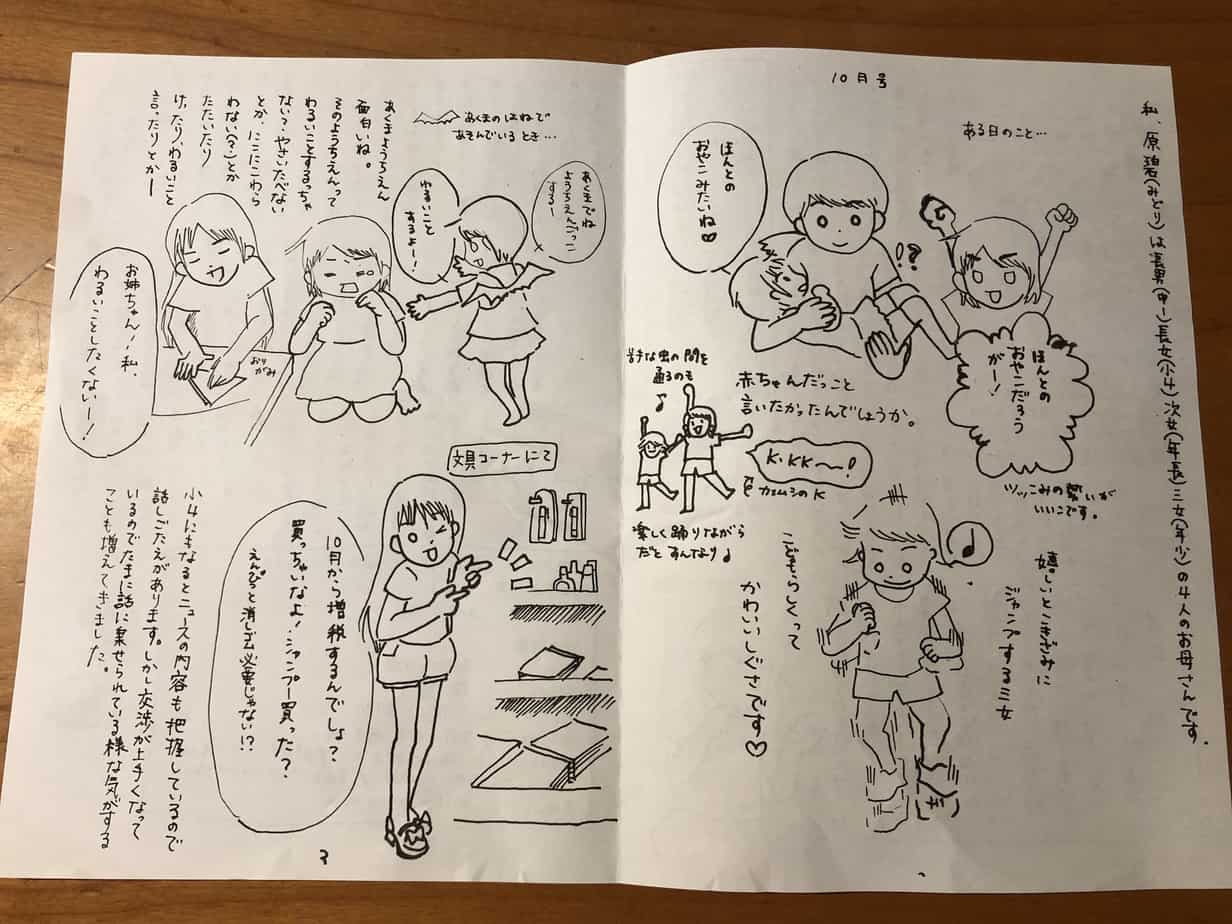 10月号
私、原碧(みどり)は長男(中一)長女(小4)次女(年長)三女(年少)の4人のお母さんです。
ある日のこと…
ほんとの
おやこみたいね♡
!?
ほんとの
おやこだろう
がー!
ツッこみの勢いが
いいこです。
赤ちゃんだっこと
言いたかったんでしょうか。
苦手な虫の間を
通るのも
♪
K・KK〜〜!
カメムシのK
楽しく踊りながら
だと すんなり♪
♪
嬉しいときざみに
ジャンプする三女
こどもらしくって
かわいいしぐさです♡
あくまのはねで
あそんでいるとき…
あくまでね
ようちえんごっこ
するー
わるいこと
するよー!
あくまようちえん
面白いね。
そのようちえんって
わるいことするっちゃ
ない?やさいたべない
とか、にこにこわら
わない(?)とか
たたいたり
けったり、わるいこと
言ったりとかー
おり
がみ
お姉ちゃん!私、
わるいことしたくないー!
文具コーナーにて
10月から増税するんでしょ?
買っちゃいなよ!シャンプー買った?
えんぴつと消しゴム必要じゃない!?
小4にもなるとニュースの内容も把握しているので
話しごたえがあります。しかし交渉が上手くなって
いるのでたまに話に乗せられている様な気がする
ことも増えてきました。
3